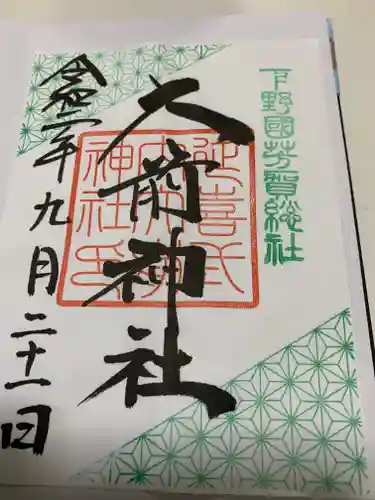 下野國芳賀総社
大前神社
延喜式
内大前
神社印
令和二年九月二十一日